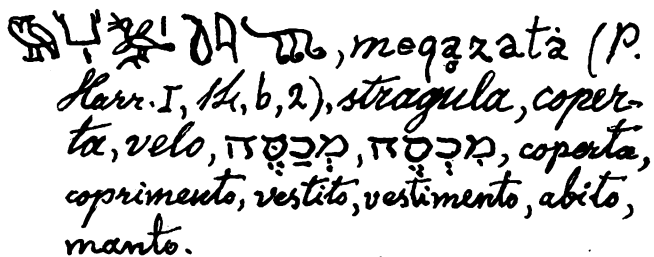 , meqḁzatȧ (P.
Harr. I, 14, b, 2), stragula, coper-
ta, velo, מְכַסֶּה, מִכְסֶה, coperta,
coprimento, vestito, vestimento, abito,
manto.